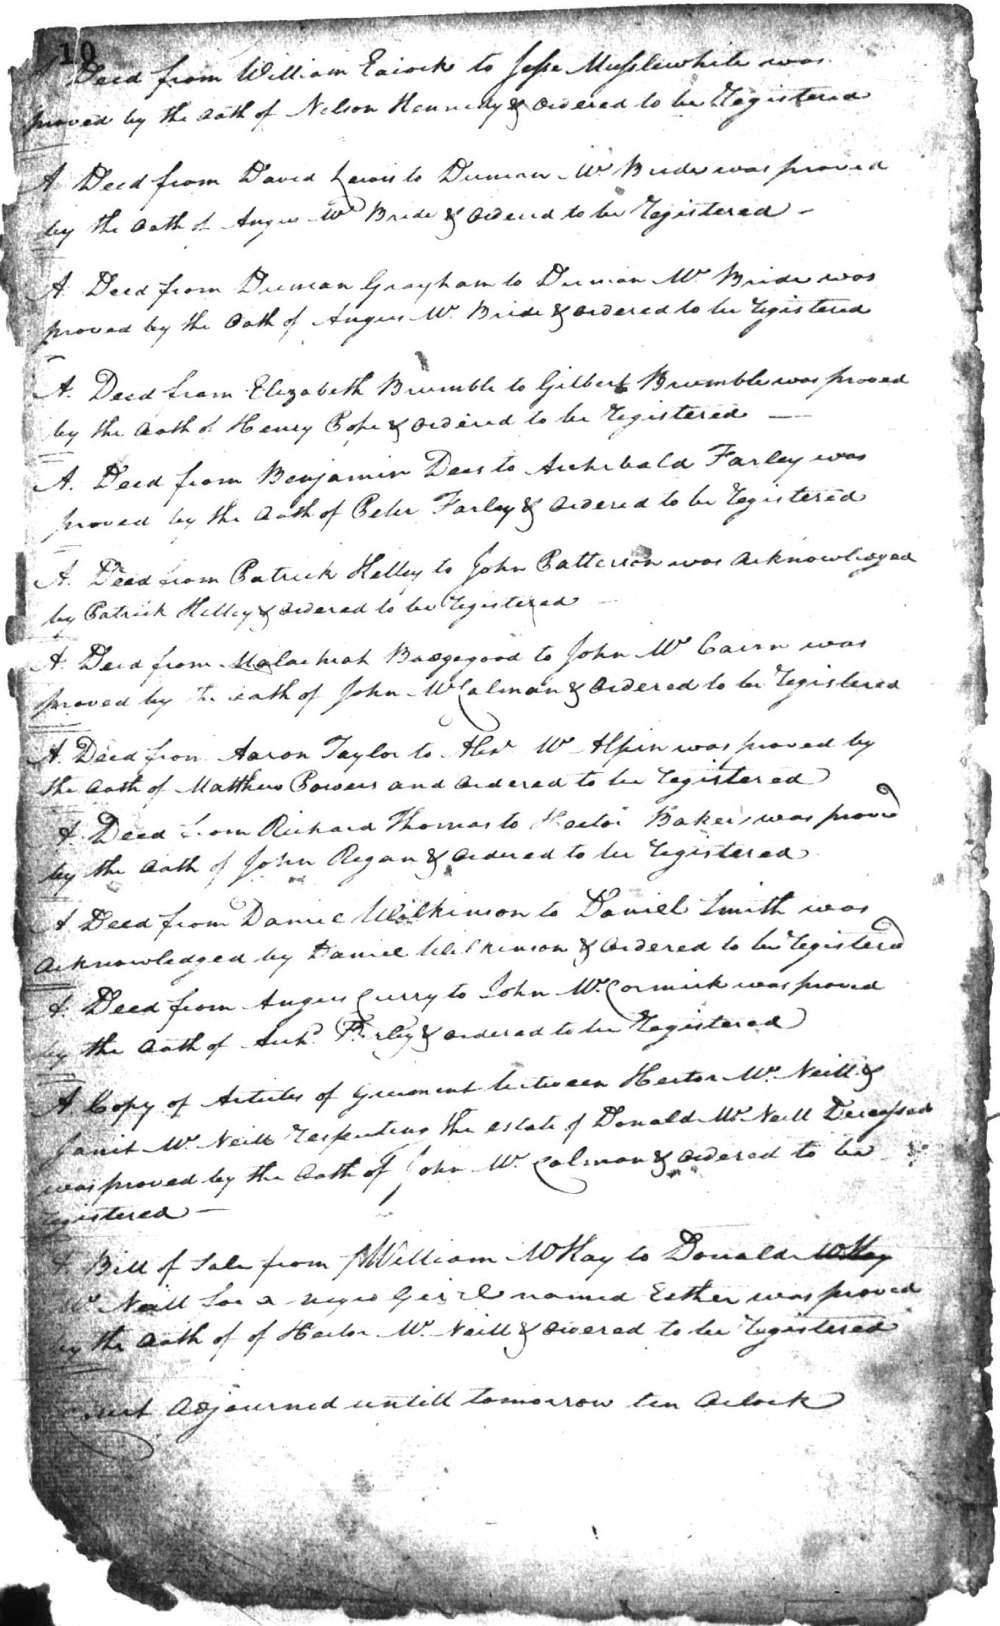 10
Deed from William Eacock to Jesse Musslewhite was
proved by the oath of Nelson Kennedy & ordered to be Registered
A Deed from David Lewis to Duncan Mc Bride was proved
by the oath of Angus Mc Bride & ordered to be Registered -
A. Deed from Duncan Grayham to Duncan Mc Bride was
proved by the Oath of Angus Mc Bride & ordered to be Registered
A. Deed from Elizabeth Brumble to Gilbert Brumble was proved
by the Oath of Henry Pope & ordered to be Registered —
A. Deed from Benjamin Dees to Archibald Farley was
proved by the Oath of Peter Farley & ordered to be Registered
A. Deed from Patrick Kelley to John Patterson was Acknowledged
by Patrick Kelley & ordered to be Registered
A. Deed from Malachiah Baggegood to John Mc Cairn was
proved by the oath of John McCalman & ordered to be Registered
A. Deed from Aaron Taylor to Alexr Mc Alpin was proved by
the Oath of Matthew Powers and ordered to be Registered
A. Deed from Richard Thomas to Hector Baker was proved
by the Oath of John Regan & ordered to be Registered
A Deed from Daniel Wilkinson to Daniel Smith was
Acknowledged by Daniel Wilkinson & ordered to be Registerd
A. Deed from Angus Curry to John Mc Cormick was proved
by the Oath of Archd Farley & ordered to be Registered
A. Copy of Articles of Greement between Hector Mc Neill &
Janit Mc Neill Respecting the estate of Donald Mc Neill Deceased
was proved by the Oath of John Mc Calman & ordered to be
Registered —
A. Bill of Sale from William McKay to Donald McKay
Mc Neill for a negro Geirl named Esther was proved
by the Oath of of Hector Mc Neill & ordered to be Registered
Court Adjourned untill tomorrow ten Oclock